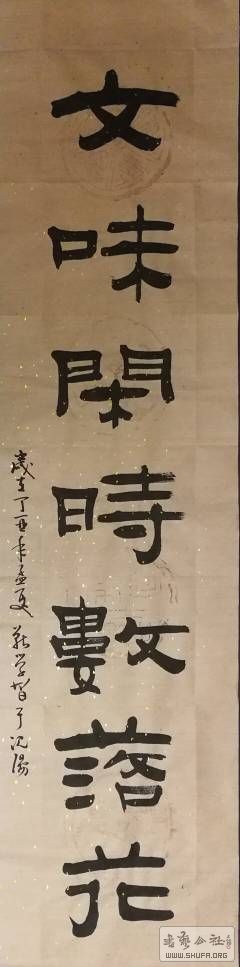 文味閑時數落花
歲在丁丑年孟夏 学智于沈陽
書藝公社
WWW.SHUFA.ORG